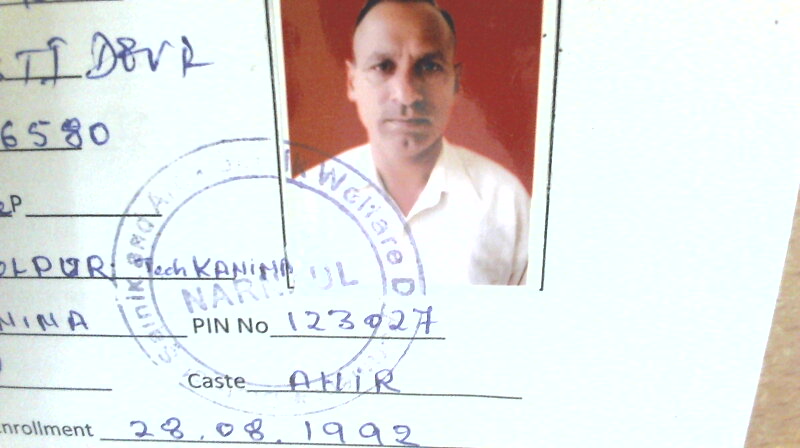 T.J DEVR
6580
RP
OLPUR Tech KANINA
NINA PIN No 123027
Caste AHIR
nrollment 28.08.1992
Welfare
NARNAUL